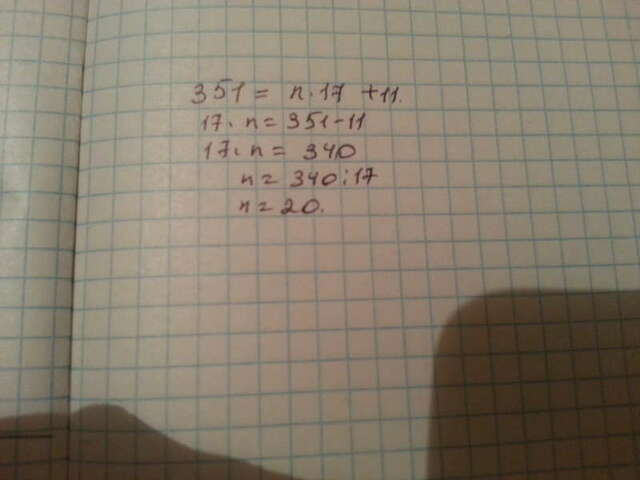 351 = n · 17 + 11.
17 · n = 351 - 11
17 · n = 340
n = 340 : 17
n = 20.